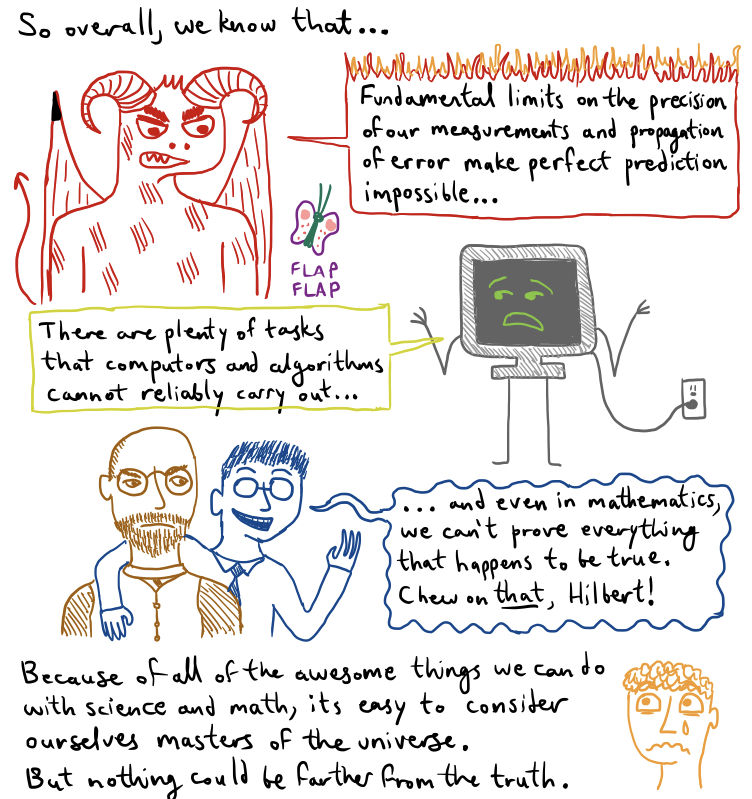 So overall, we know that...
Fundamental limits on the precision
of our measurements and propagation
of error make perfect prediction
impossible...
FLAP
FLAP
There are plenty of tasks
that computors and algorithms
cannot reliably carry out...
... and even in mathematics,
we can't prove everything
that happens to be true.
Chew on that, Hilbert!
Because of all of the awesome things we can do
with science and math, its easy to consider
ourselves masters of the universe.
But nothing could be farther from the truth.